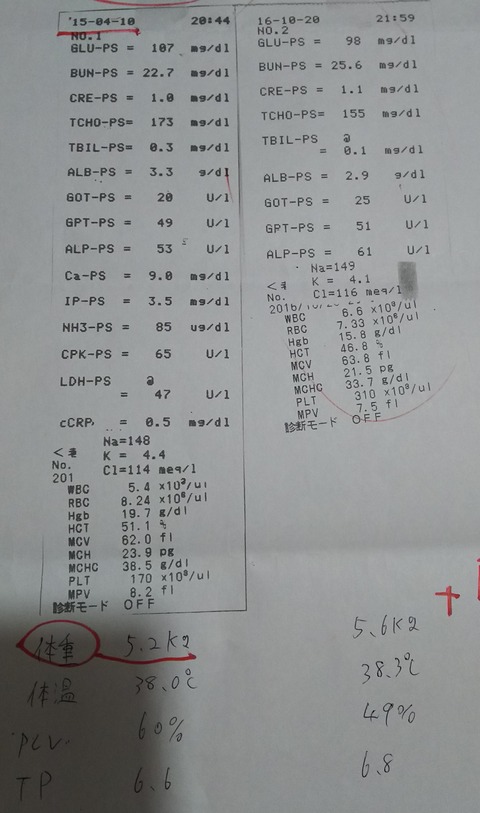 '15-04-10 20:44
NO.1
GLU-PS = 107 mg/dl
BUN-PS = 22.7 mg/dl
CRE-PS = 1.0 mg/dl
TCHO-PS= 173 mg/dl
TBIL-PS= 0.3 mg/dl
ALB-PS = 3.3 g/dl
GOT-PS = 20 U/l
GPT-PS = 49 U/l
ALP-PS = 53 U/l
Ca-PS = 9.0 mg/dl
IP-PS = 3.5 mg/dl
NH3-PS = 85 ug/dl
CPK-PS = 65 U/l
LDH-PS @
= 47 U/l
cCRP = 0.5 mg/dl
Na=148
K = 4.4
No. Cl=114 meq/l
201
WBC 5.4 x10³/ul
RBC 8.24 x10⁶/ul
Hgb 19.7 g/dl
HCT 51.1 %
MCV 62.0 fl
MCH 23.9 pg
MCHC 38.5 g/dl
PLT 170 x10³/ul
MPV 8.2 fl
診断モード OFF
体重 5.2Kg
体温 38.0℃
PCV 60%
TP 6.6
16-10-20 21:59
NO.2
GLU-PS = 98 mg/dl
BUN-PS = 25.6 mg/dl
CRE-PS = 1.1 mg/dl
TCHO-PS= 155 mg/dl
TBIL-PS @
= 0.1 mg/dl
ALB-PS = 2.9 g/dl
GOT-PS = 25 U/l
GPT-PS = 51 U/l
ALP-PS = 61 U/l
Na=149
K = 4.1
No. Cl=116 meq/l
WBC 6.6 x10³/ul
RBC 7.33 x10⁶/ul
Hgb 15.8 g/dl
HCT 46.8 %
MCV 63.8 fl
MCH 21.5 pg
MCHC 33.7 g/dl
PLT 310 x10³/ul
MPV 7.5 fl
診断モード OFF
5.6Kg
38.3℃
49%
6.8